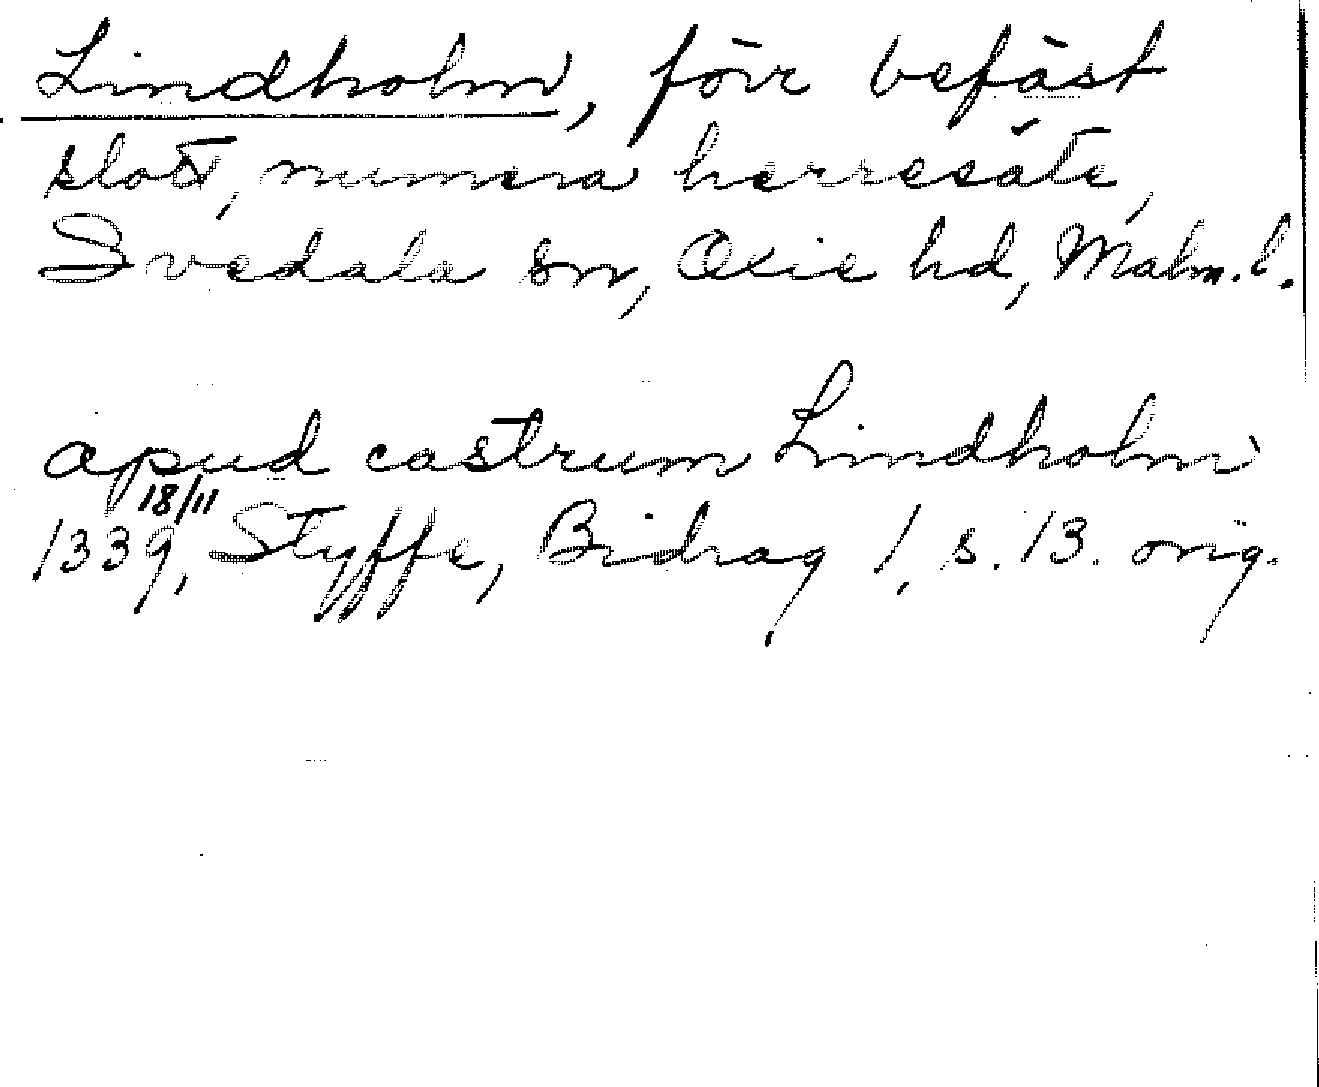 Lindholm, förr befäst
slott, numera herresäte,
Svedala sn, Oxie hd, Malm. l.
apud castrum Lindholm
18/11
1339, Styffe, Bidrag 1, s. 13. orig.